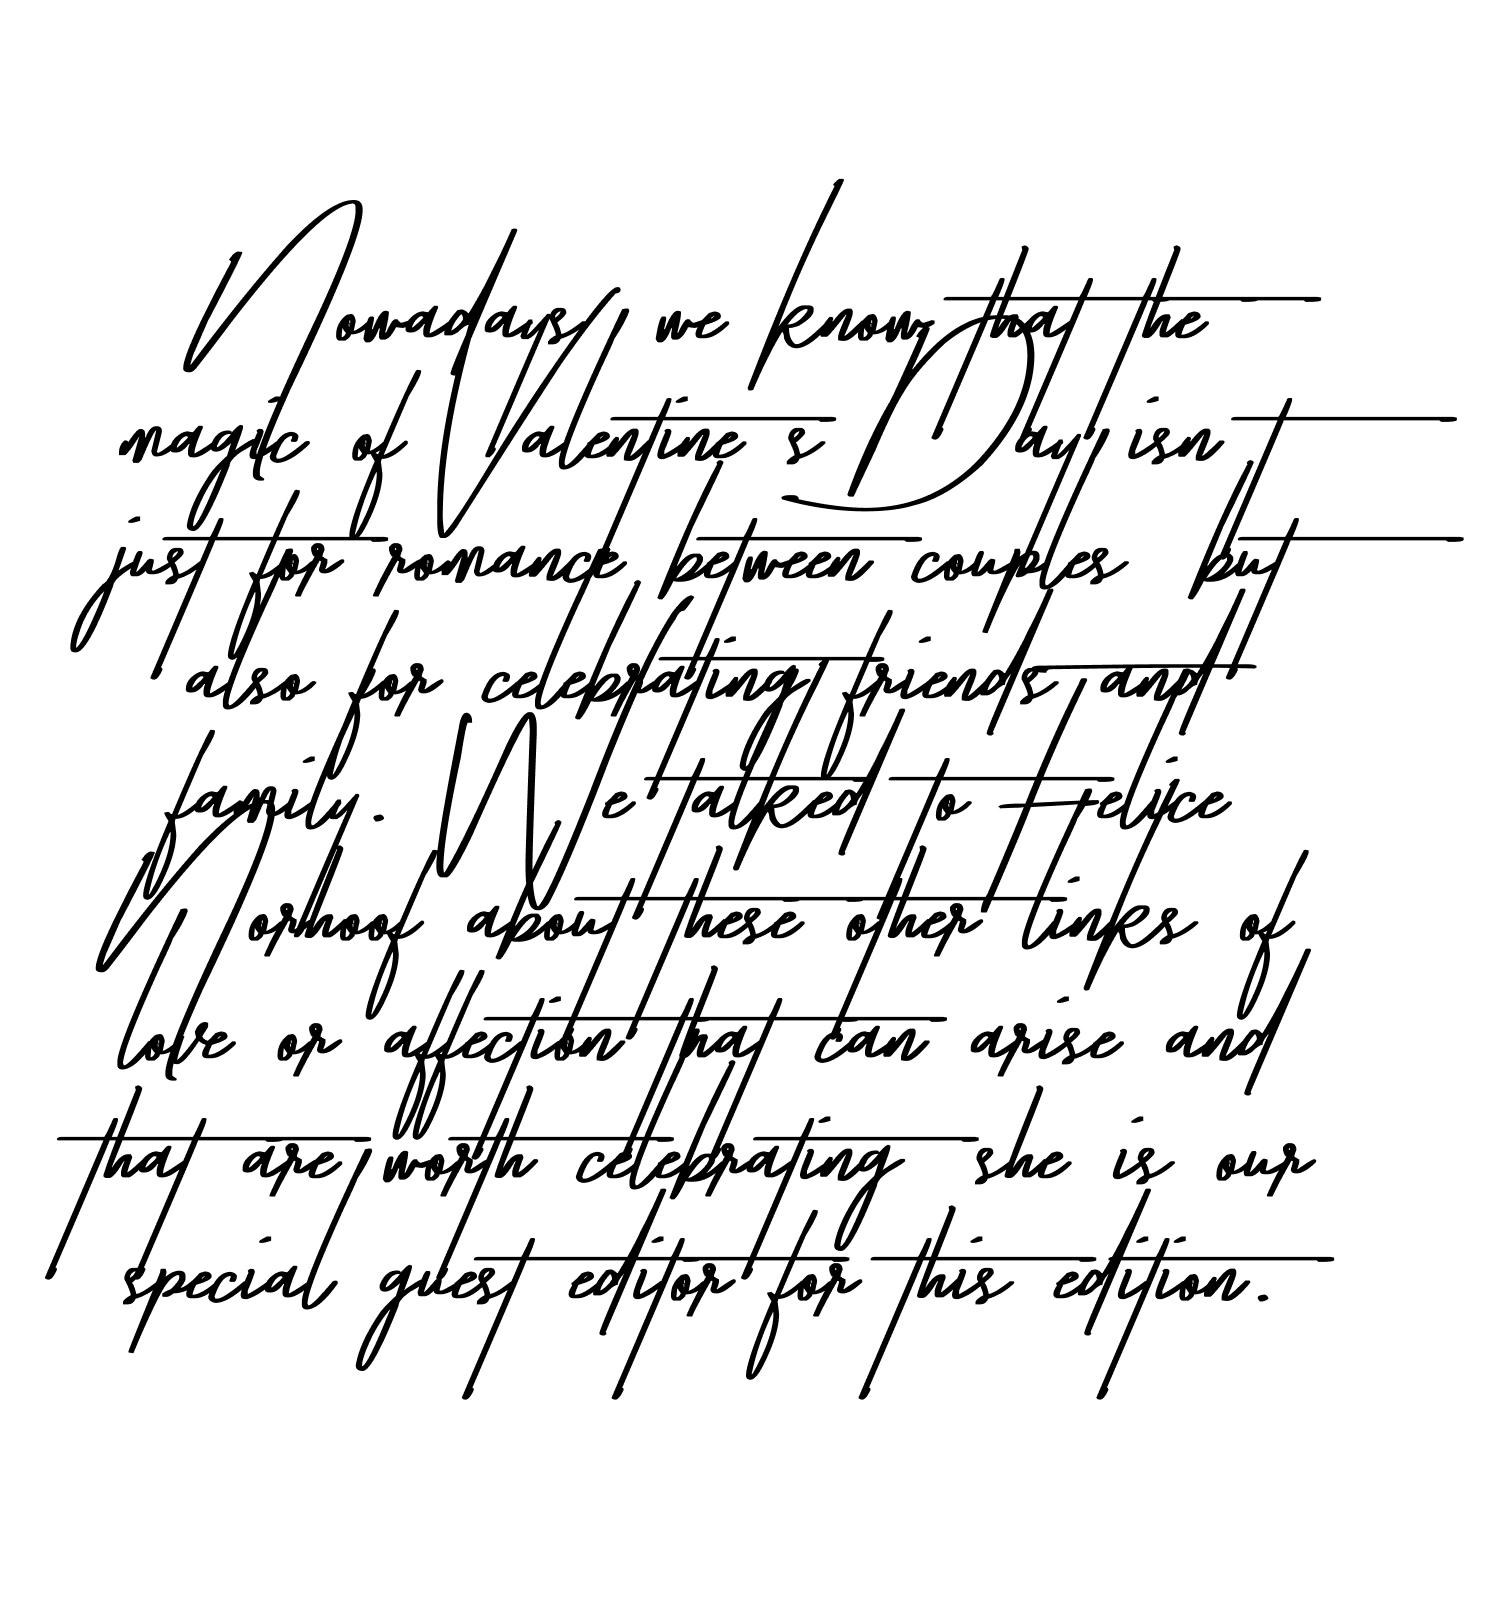 Nowadays we know that the
magic of Valentine s Day isn t
just for romance between couples but
also for celebrating friends and
family. We talked to Felice
Nørhoof about these other links of
love or affection that can arise and
that are worth celebrating she is our
special guest editor for this edition.